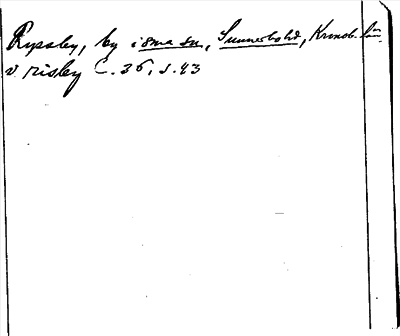 Ryssby, by i sma sn, Sunnerbo hd, Kronob. län
v risby C. 36, s. 43